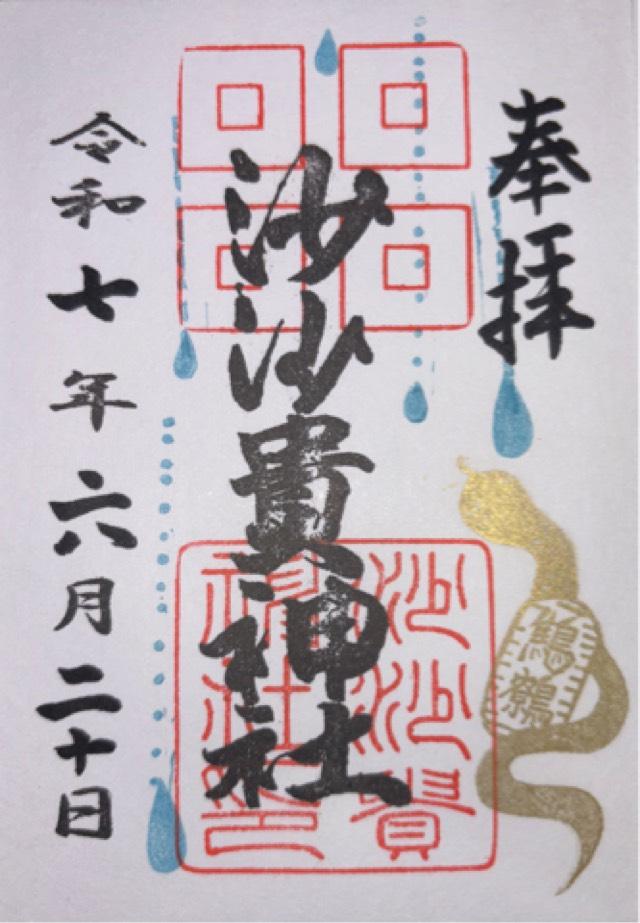 奉拝
沙沙貴神社
沙沙貴
神社之印
令和七年六月二十日